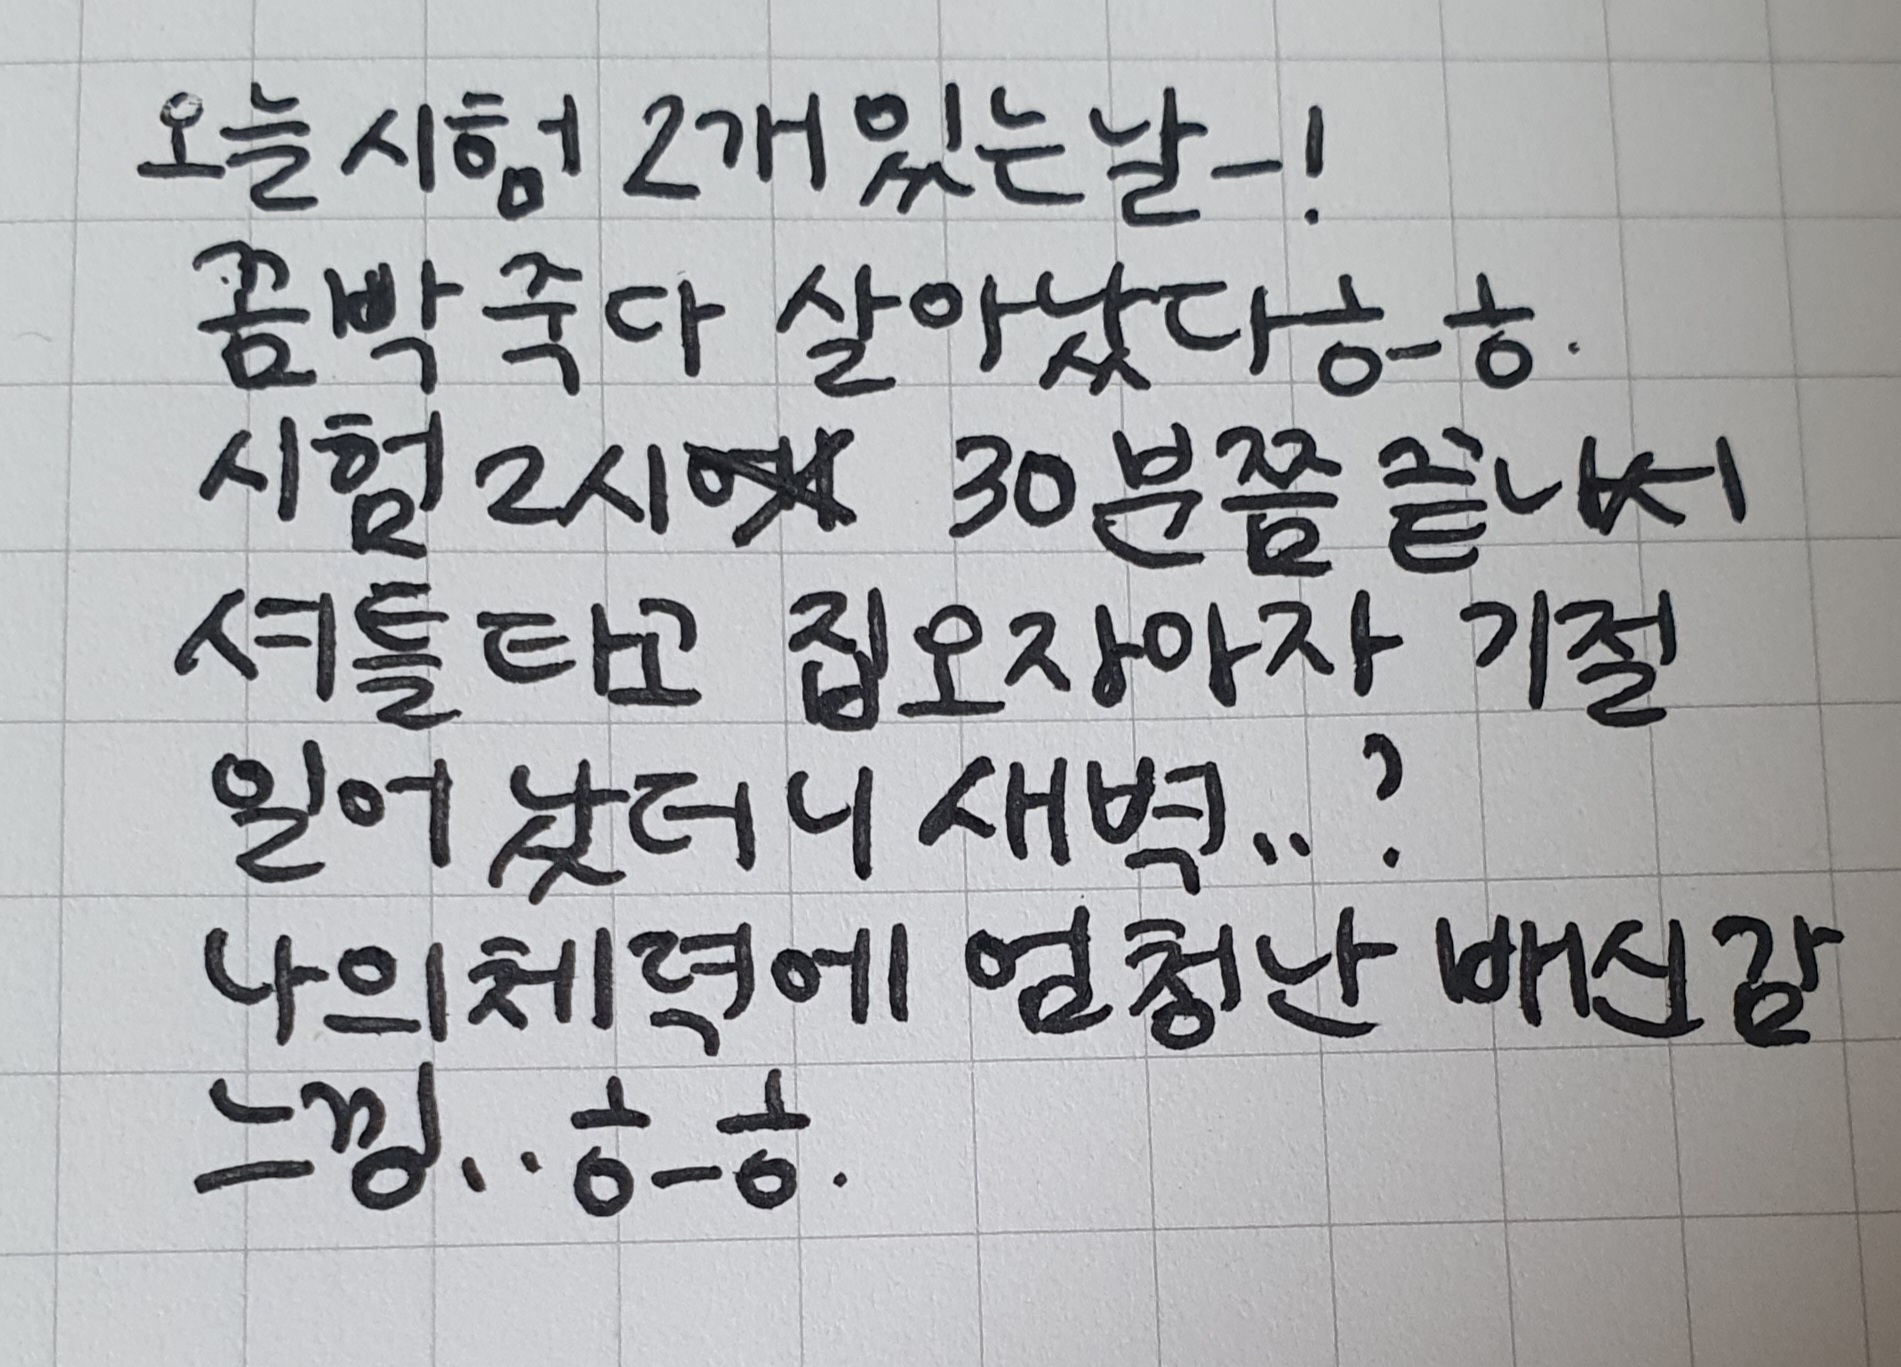 오늘 시험 2개 있는 날-!
꼼빡 죽다 살아났다ㅎ-ㅎ.
시험 2시 30분쯤 끝나서
셔틀 타고 집오장아자 기절
일어 났더니 새벽..?
나의 체력에 엄청난 배신감
느낌..ㅎ-ㅎ.